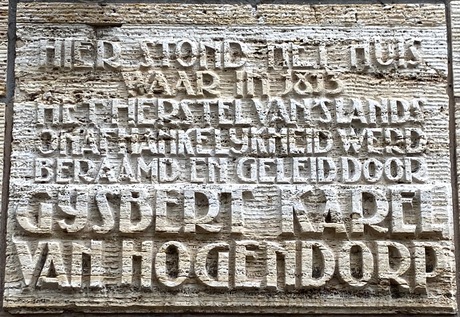 HIER STOND HET HUIS
WAAR IN 1813
HET HERSTEL VAN 'S LANDS
ONAFHANKELYKHEID WERD
BERAAMD EN GELEID DOOR
GYSBERT KAREL
VAN HOGENDORP